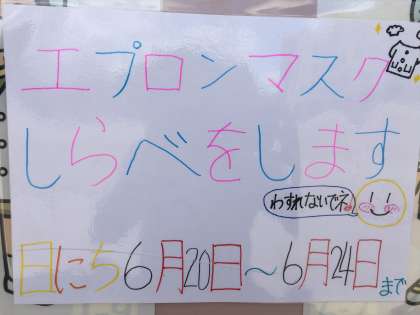 エプロンマスク
しらべをします
わすれないでネ
日にち6月20日〜6月24日まで